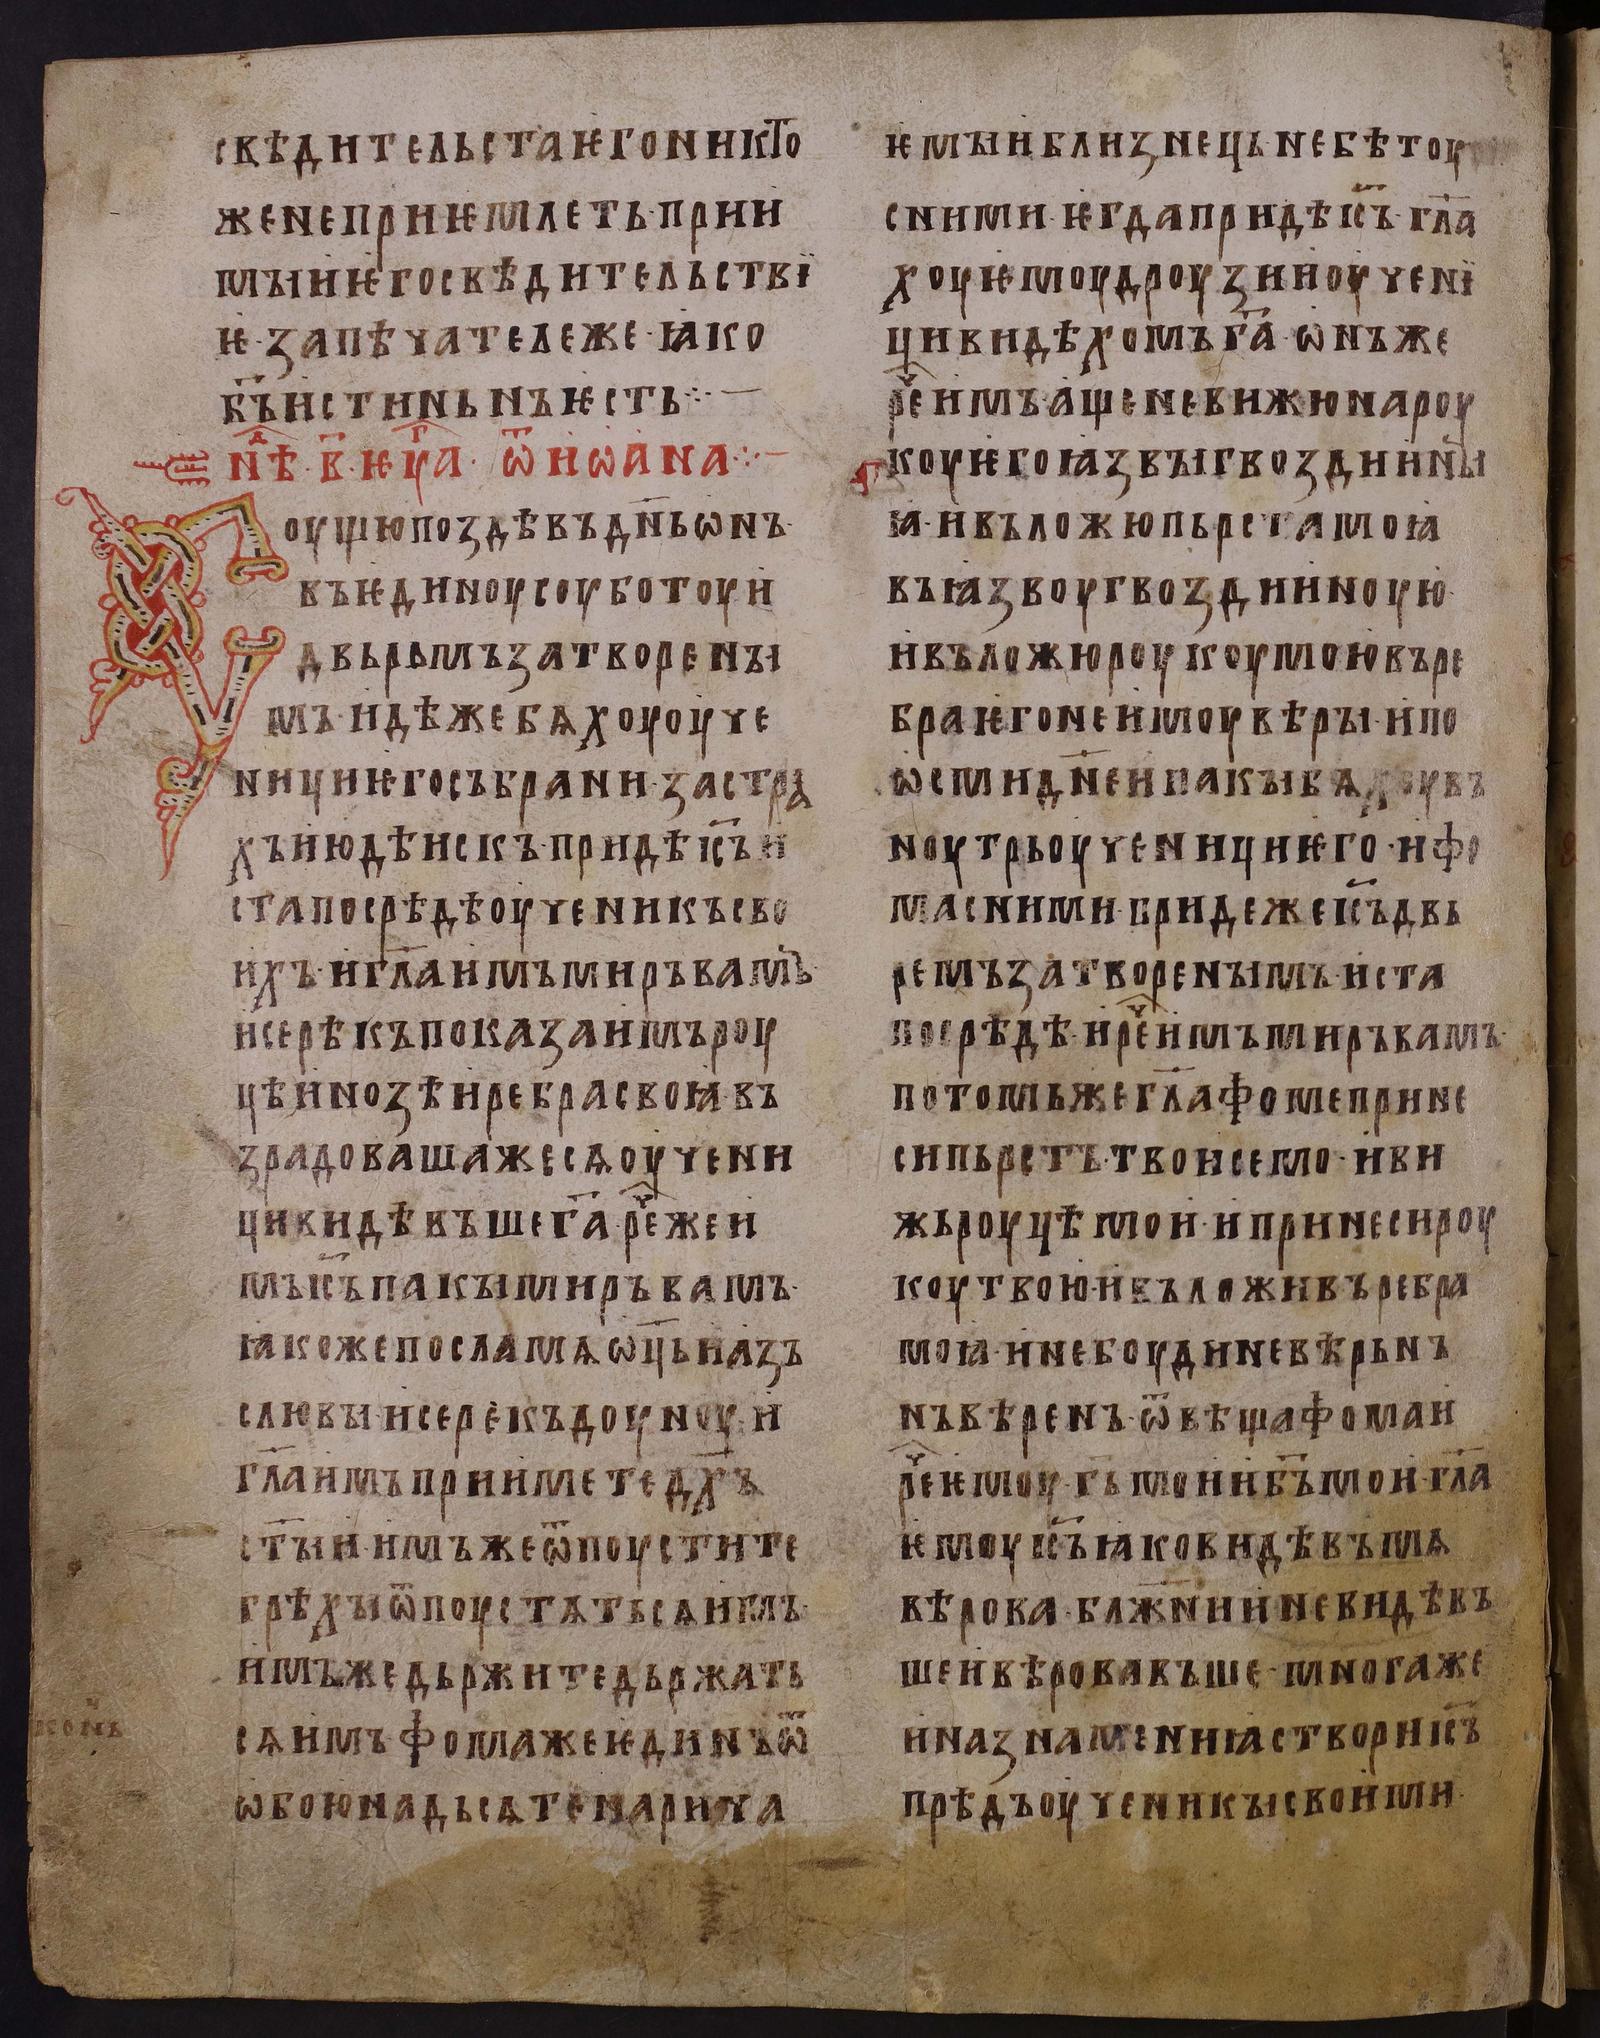 свѣдительстаѥгоникто
женеприѥмлеть·прии
мꙑиѥгосвѣдительстві
ѥ·запѣчатележе·ꙗко
б҃ъистиньнъѥсть჻—
нⷣѣ·в҃·ѥѵⷢа·ѿиѡана჻—
соущюпоздѣвъдн҃ьѡнъ·
въѥдиноусоуботоуи
двьрьмъзатворенꙑ
мъ·идѣжебѧхоуоуче
нициѥгосъбрани·застра
хъиюдѣискъ·придѣіс҃ъи
стапосрѣдѣоученикъсво
ихъ·игл҃аимъмиръвамъ·
исерѣкъпоказаимъроу
цѣинозѣиребрасвоꙗ·въ
зрадовашажесѧоучени
цивидѣвъшег҃а·реⷱжеи
мъіс҃ъпакꙑмиръвамъ·
ꙗкожепосламѧѡц҃ьиазъ
слювꙑ·исерекъдоуноу·и
гл҃аимъприиметед҃хъ
ст҃ꙑи·имъжеѿпоустите
грѣхꙑѿпоустѧтьсѧимъ·
имъжедьржитедьржать
сѧимъ·фомажеѥдинъѿ
ѡбоюнадьсѧтенарича
ѥмꙑиблизнець·небѣтоу
сними·ѥгдапридѣіс҃ъ·гл҃а
хоуѥмоудроузииоучені
цивидѣхомъг҃а·ѡнъже
реⷱимъащеневижюнароу
коуѥгоꙗзвꙑгвоздиинꙑ
ꙗ·ивъложюпьрстамоꙗ
въꙗзвоугвоздииноую·
ивъложюроукоумоювъре
браѥгонеимоувѣрꙑ·ипо
ѡсмидн҃еипакꙑбѧхоувъ
ноутрьоученициѥго·ифо
масними·придежеіс҃ъдвь
ремъзатворенꙑмъ·иста
посрѣдѣ·иреⷱимъмиръвамъ·
потомьжегл҃афомеприне
сипьрстъ·твоисемо·иви
жьроуцѣмои·ипринесироу
коутвою·ивъложивъребра
моꙗ·инебоудиневѣрьнъ
нъвѣренъ·ѿвѣщафомаи
реⷱѥмоу·г҃ьмоииб҃ъмои·гл҃а
ѥмоуіс҃ъꙗковидѣвъмѧ
вѣрова·блж҃нииневидѣвъ
шеивѣровавъше·многаже
иназнамениꙗствориіс҃ъ
прѣдъоученикꙑсвоими·